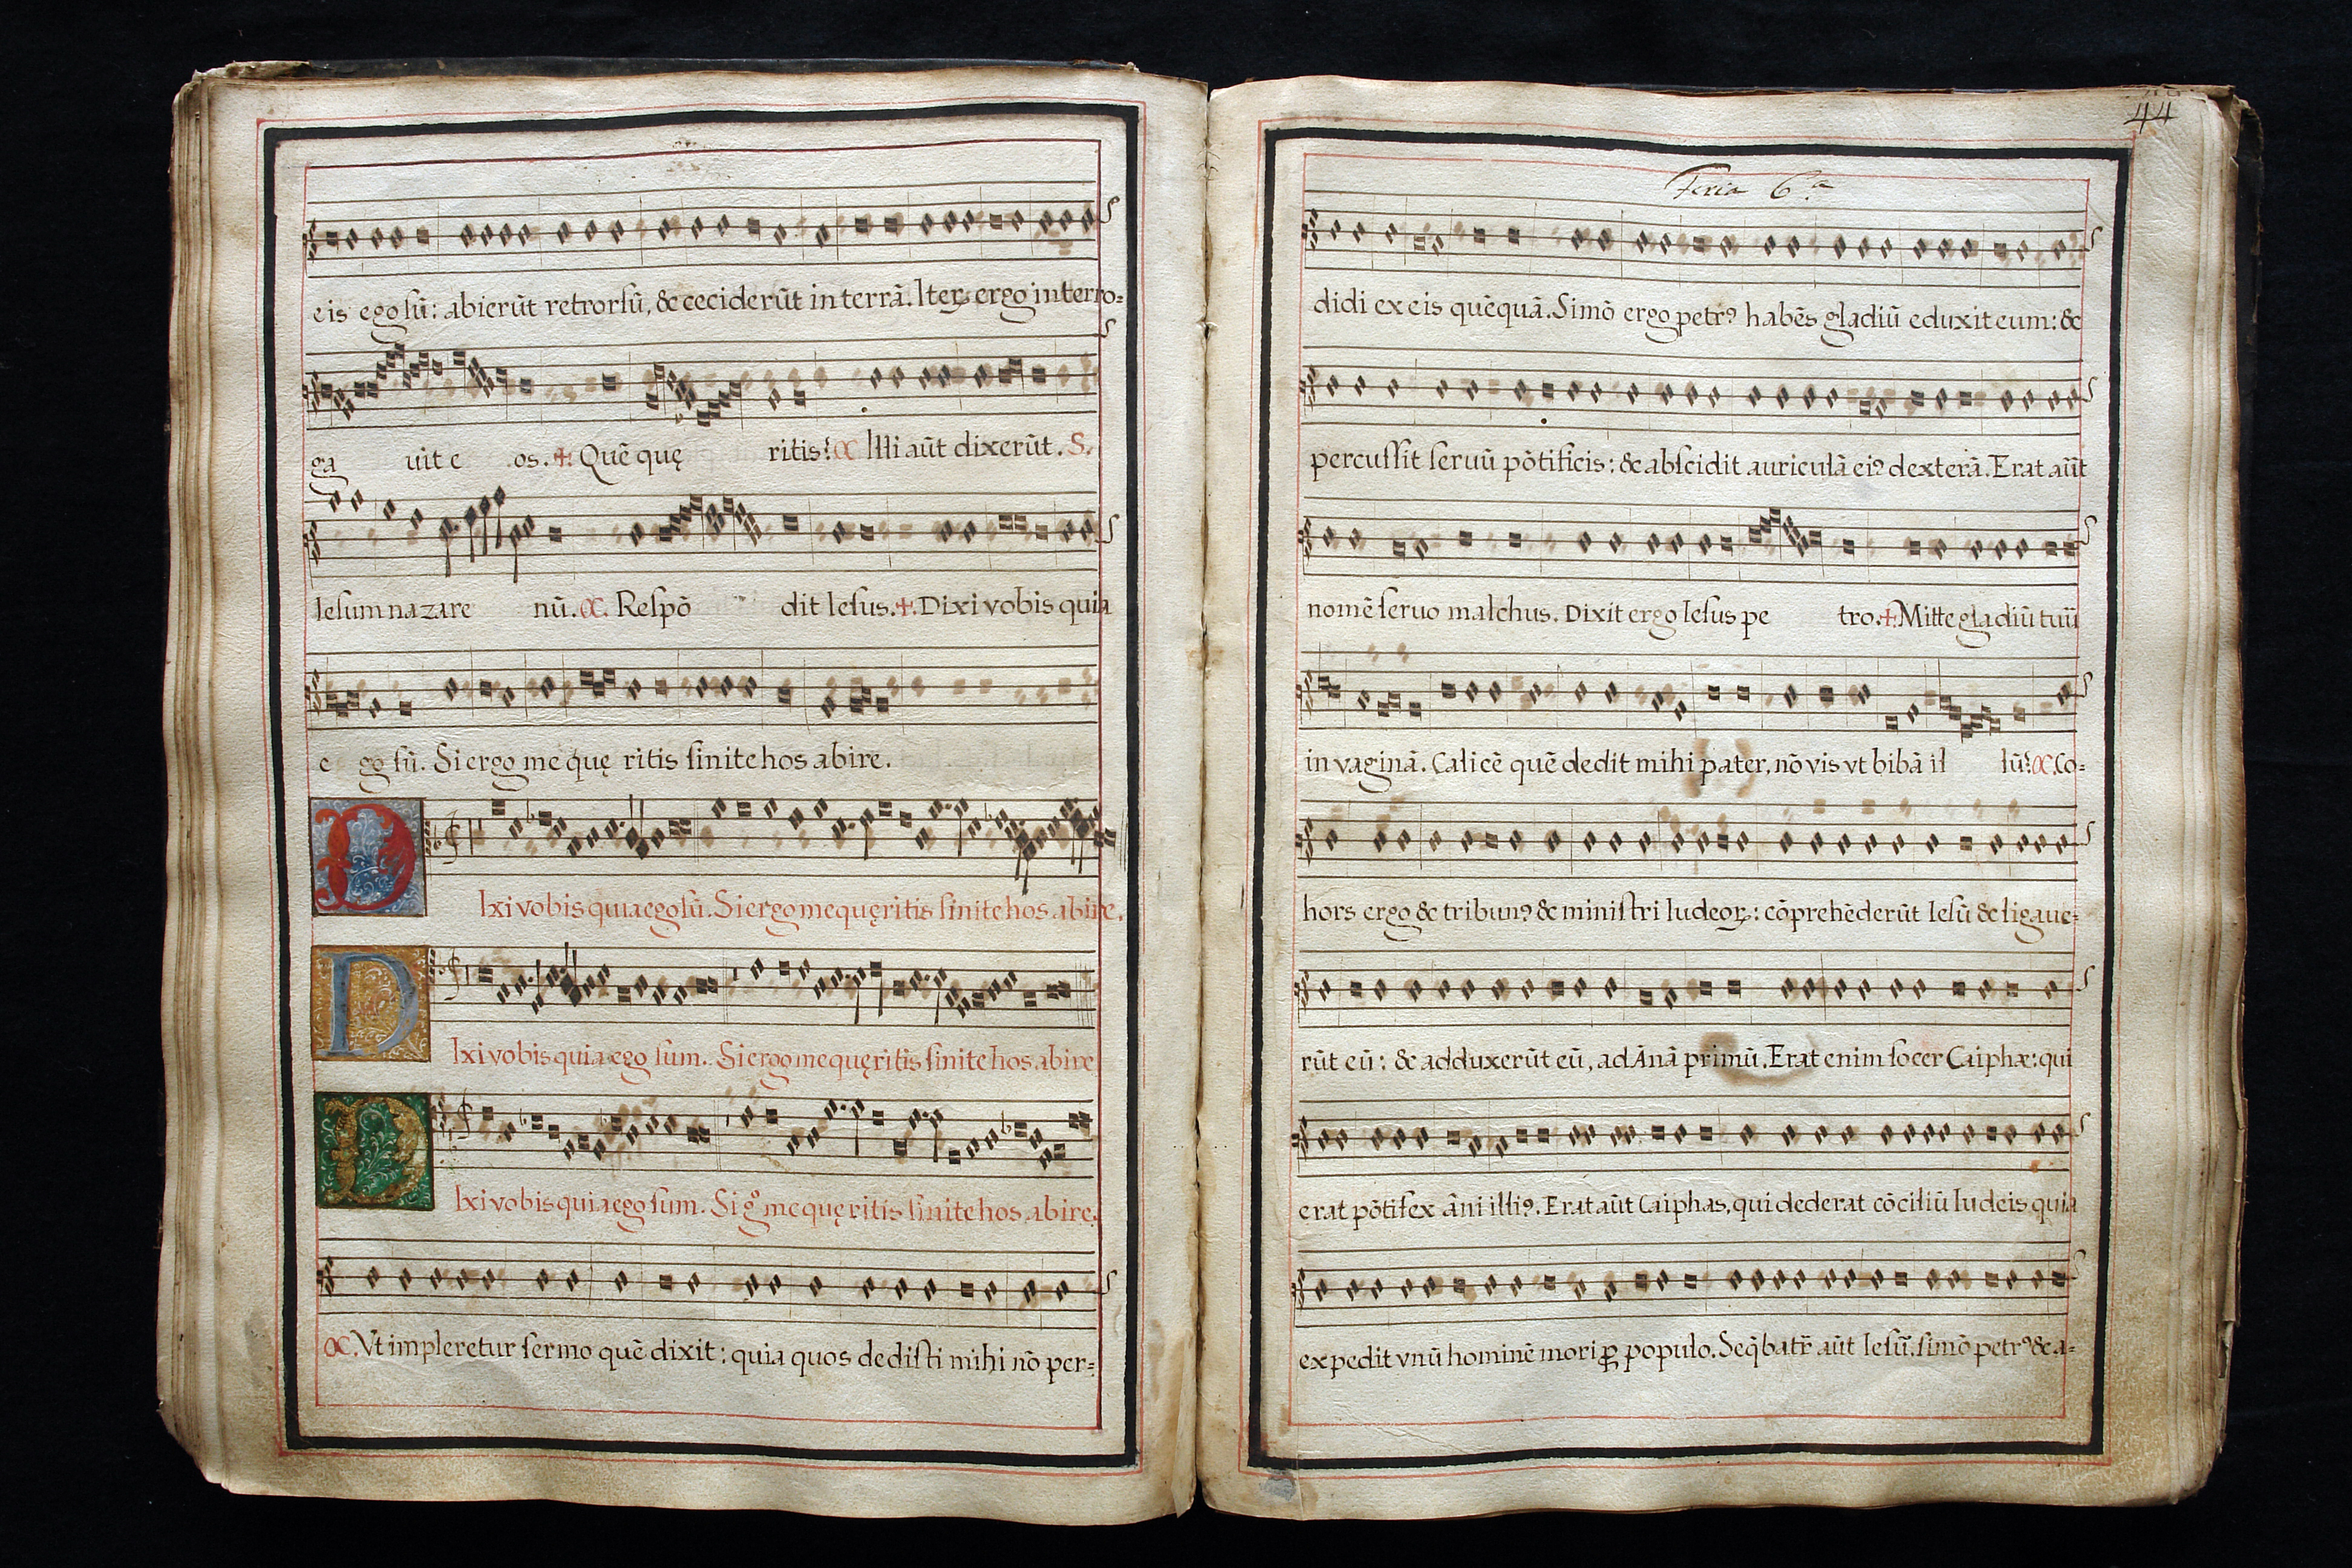 eis ego ſū: abierūt retrorſū, & ceciderūt in terrā. Iteꝝ ergo interro=
ga uit e os. ✝. Quē quę ritis? C. Illi aūt dixerūt. S.
Ieſum nazare nū. C. Reſpō dit Ieſus. ✝. Dixi vobis quia
e go ſū. Si ergo me quę ritis ſinite hos abire.
DIxi vobis quia ego ſū. Si ergo me quęritis ſinite hos abire.
DIxi vobis quia ego ſum. Si ergo me quęritis ſinite hos abire
DIxi vobis quia ego ſum. Si gͦ me quęritis ſinite hos abire.
C. Vt impleretur ſermo quē dixit: quia quos dediſti mihi nō per=
44
Feria 6.ª
didi ex eis quēquā. Simō ergo petrꝰ habēs gladiū eduxit eum: &
percuſſit ſeruū pōtificis: & abſcidit auriculā eiꝰ dexterā. Erat aūt
nomē ſeruo malchus. Dixit ergo Ieſus pe tro. ✝. Mitte gladiū tuū
in vaginā. Calicē quē dedit mihi pater, nō vis vt bibā il lū? C. Co=
hors ergo & tribunꝰ & miniſtri Iudeoꝝ: cōprehēderūt Ieſū & ligaue=
rūt eū: & adduxerūt eū, ad Ānā primū. Erat enim ſocer Caiphæ: qui
erat pōtifex āni illiꝰ. Erat aūt Caiphas, qui dederat cōciliū Iudeis quia
expedit vnū hominē mori ꝓ populo. Seq̄batr̄ aūt Ieſū. ſimō petrꝰ & a=